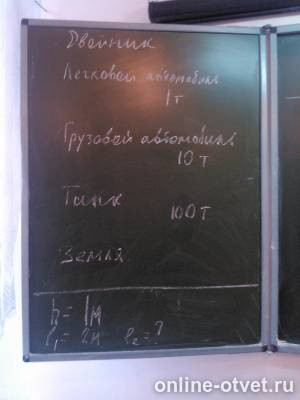 Двойник
Легковой автомобиль
1 т
Грузовой автомобиль
10 т
Танк 100 т
Земля
h = 1м
l₁ = 2м l₂ = ?
online-otvet.ru